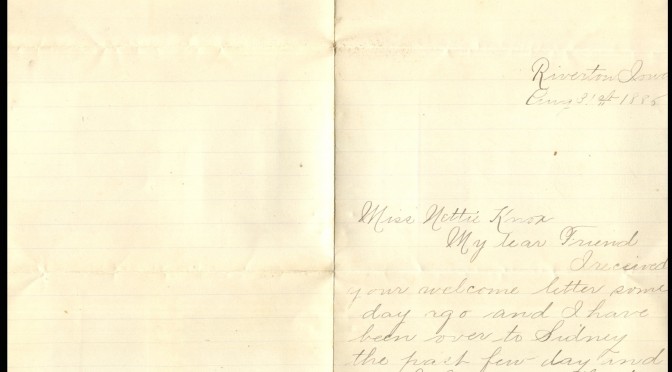 Riverton Iowa
Aug 31st 188
Miss Nettie Knox
My Dear Friend
I recieved
your welcome letter some
day ago and I have
been over to Sidney
the past few day and